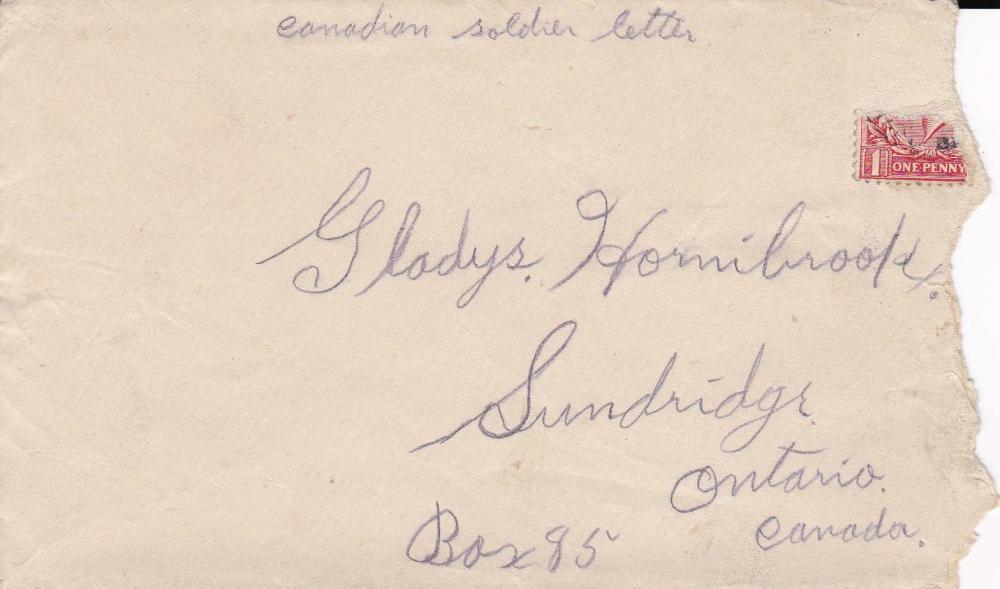 canadian soldier letter
1 ONE PENNY
Gladys. Hornibrook.
Sundridge.
Ontario.
Canada.
Box 85